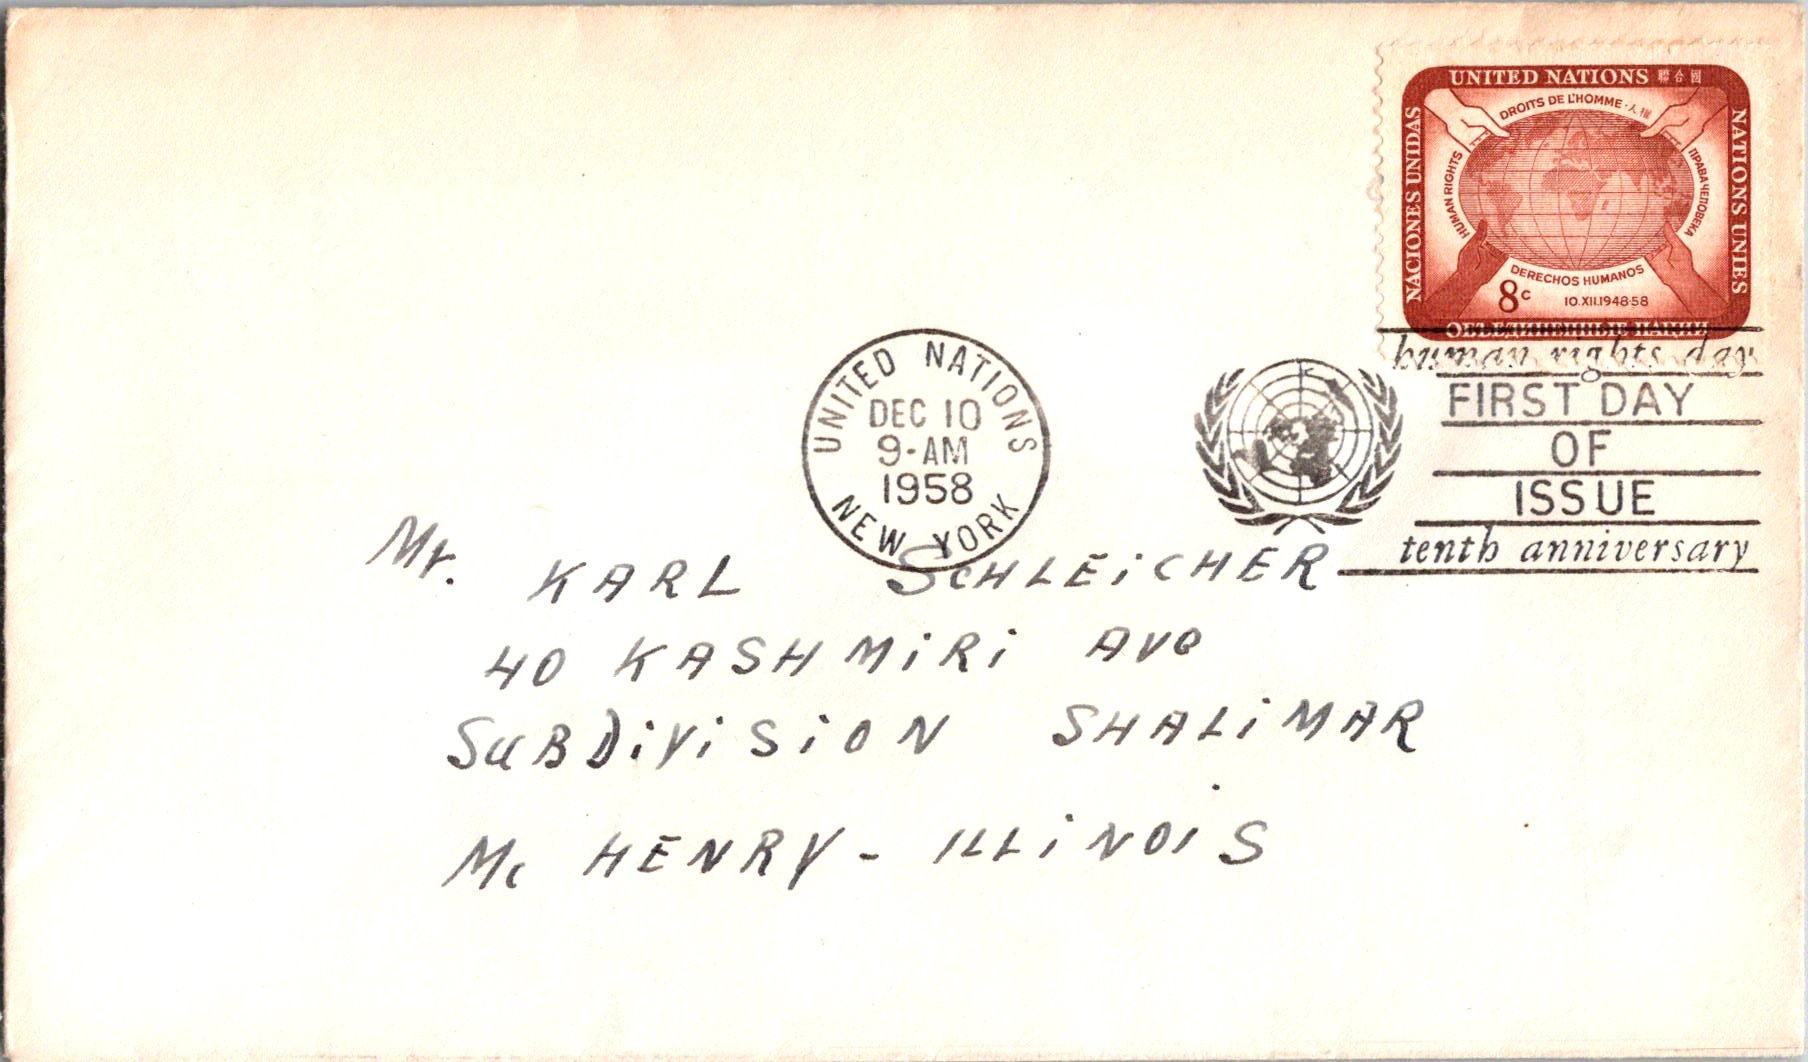 UNITED NATIONS 聯合國
NACIONES UNIDAS
NATIONS UNIES
DROITS DE L'HOMME · 人權
HUMAN RIGHTS
ПРАВА ЧЕЛОВЕКА
DERECHOS HUMANOS
8c 10.XII.1948-58
human rights day
FIRST DAY
OF
ISSUE
tenth anniversary
UNITED NATIONS
DEC 10
9-AM
1958
NEW YORK
Mr. KARL SCHLEiCHER
40 KASHMiRi AVe
SUBDiViSiON SHALiMAR
Mc HENRY - ILLiNOiS